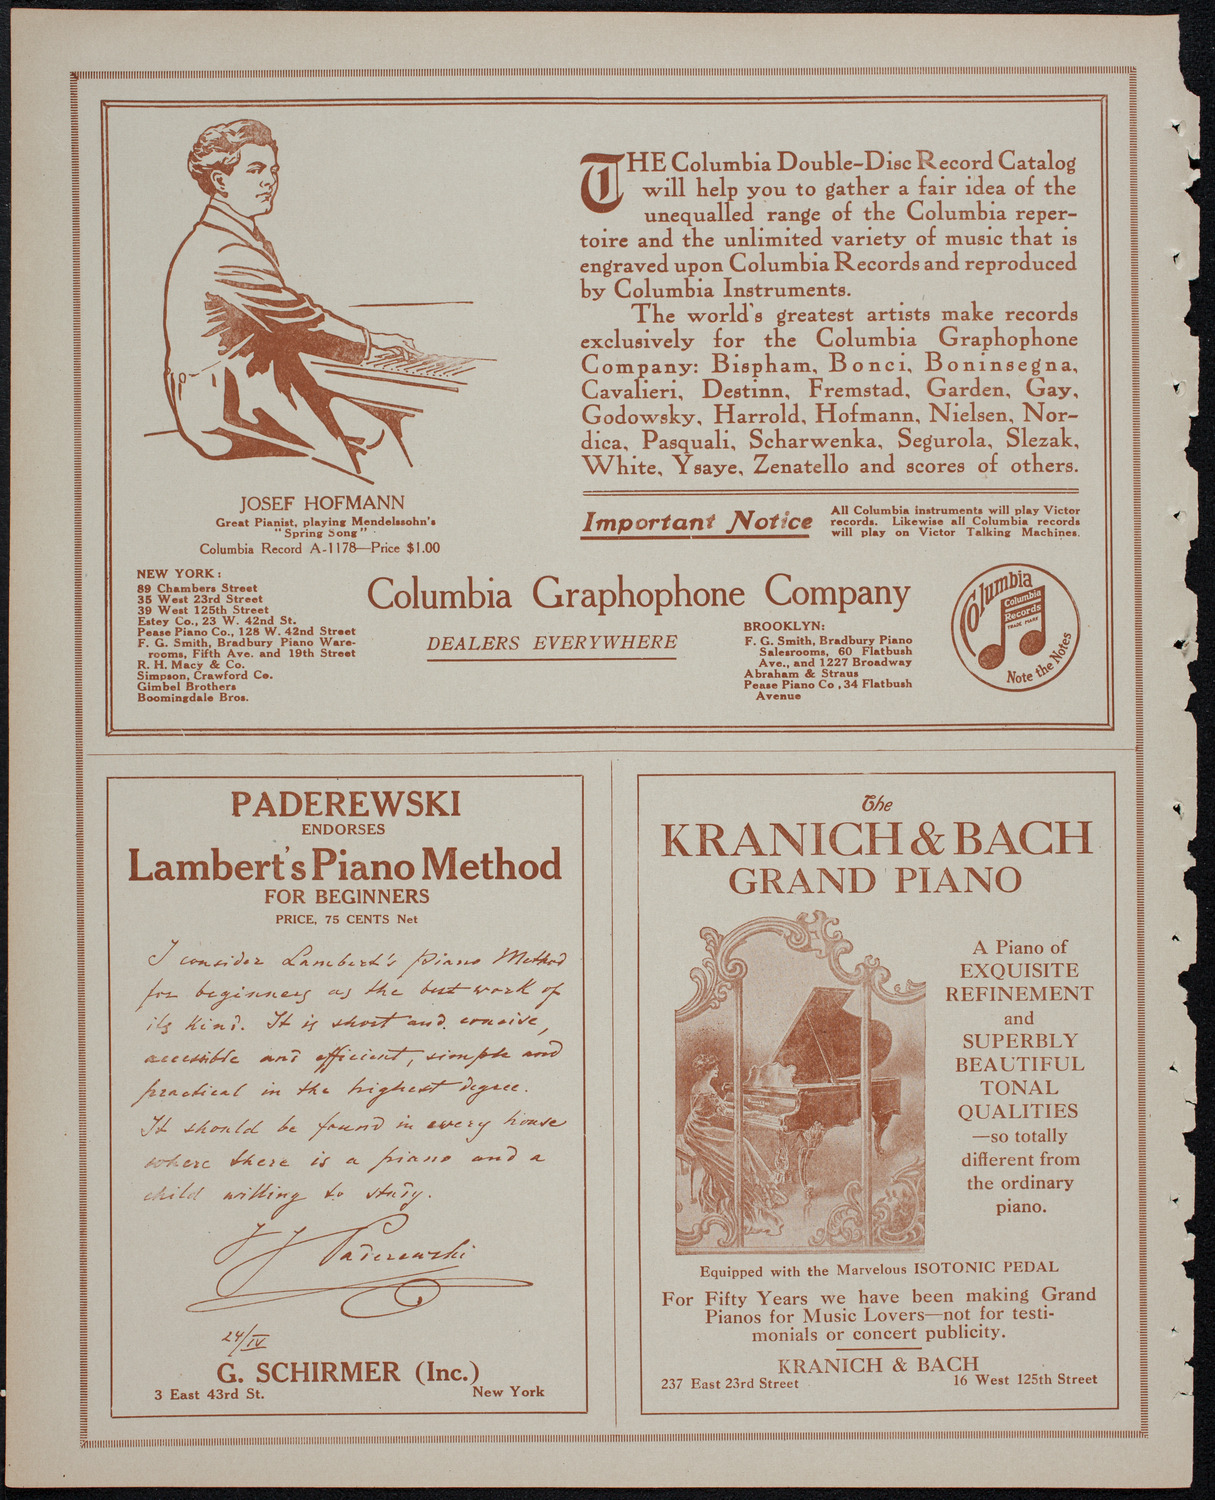 THE Columbia Double-Disc Record Catalog
will help you to gather a fair idea of the
unequalled range of the Columbia reper-
toire and the unlimited variety of music that is
engraved upon Columbia Records and reproduced
by Columbia Instruments.
The world's greatest artists make records
exclusively for the Columbia Graphophone
Company: Bispham, Bonci, Boninsegna,
Cavalieri, Destinn, Fremstad, Garden, Gay,
Godowsky, Harrold, Hofmann, Nielsen, Nor-
dica, Pasquali, Scharwenka, Segurola, Slezak,
White, Ysaye, Zenatello and scores of others.
JOSEF HOFMANN
Great Pianist, playing Mendelssohn's
"Spring Song"
Columbia Record A-1178—Price $1.00
Important Notice
All Columbia instruments will play Victor
records. Likewise all Columbia records
will play on Victor Talking Machines.
NEW YORK:
89 Chambers Street
35 West 23rd Street
39 West 125th Street
Estey Co., 23 W. 42nd St.
Pease Piano Co., 128 W. 42nd Street
F. G. Smith, Bradbury Piano Ware-
rooms, Fifth Ave. and 19th Street
R. H. Macy & Co.
Simpson, Crawford Co.
Gimbel Brothers
Boomingdale Bros.
Columbia Graphophone Company
DEALERS EVERYWHERE
BROOKLYN:
F. G. Smith, Bradbury Piano
Salesrooms, 60 Flatbush
Ave., and 1227 Broadway
Abraham & Straus
Pease Piano Co., 34 Flatbush
Avenue
Columbia
Columbia
Records
TRADE MARK
Note the Notes
PADEREWSKI
ENDORSES
Lambert's Piano Method
FOR BEGINNERS
PRICE, 75 CENTS Net
I consider Lambert's Piano Method
for beginners as the best work of
its kind. It is short and concise,
accessible and efficient, simple and
practical in the highest degree.
It should be found in every house
where there is a piano and a
child willing to study.
I J Paderewski
24/IV
G. SCHIRMER (Inc.)
3 East 43rd St. New York
The
KRANICH & BACH
GRAND PIANO
A Piano of
EXQUISITE
REFINEMENT
and
SUPERBLY
BEAUTIFUL
TONAL
QUALITIES
—so totally
different from
the ordinary
piano.
Equipped with the Marvelous ISOTONIC PEDAL
For Fifty Years we have been making Grand
Pianos for Music Lovers—not for testi-
monials or concert publicity.
KRANICH & BACH
237 East 23rd Street 16 West 125th Street